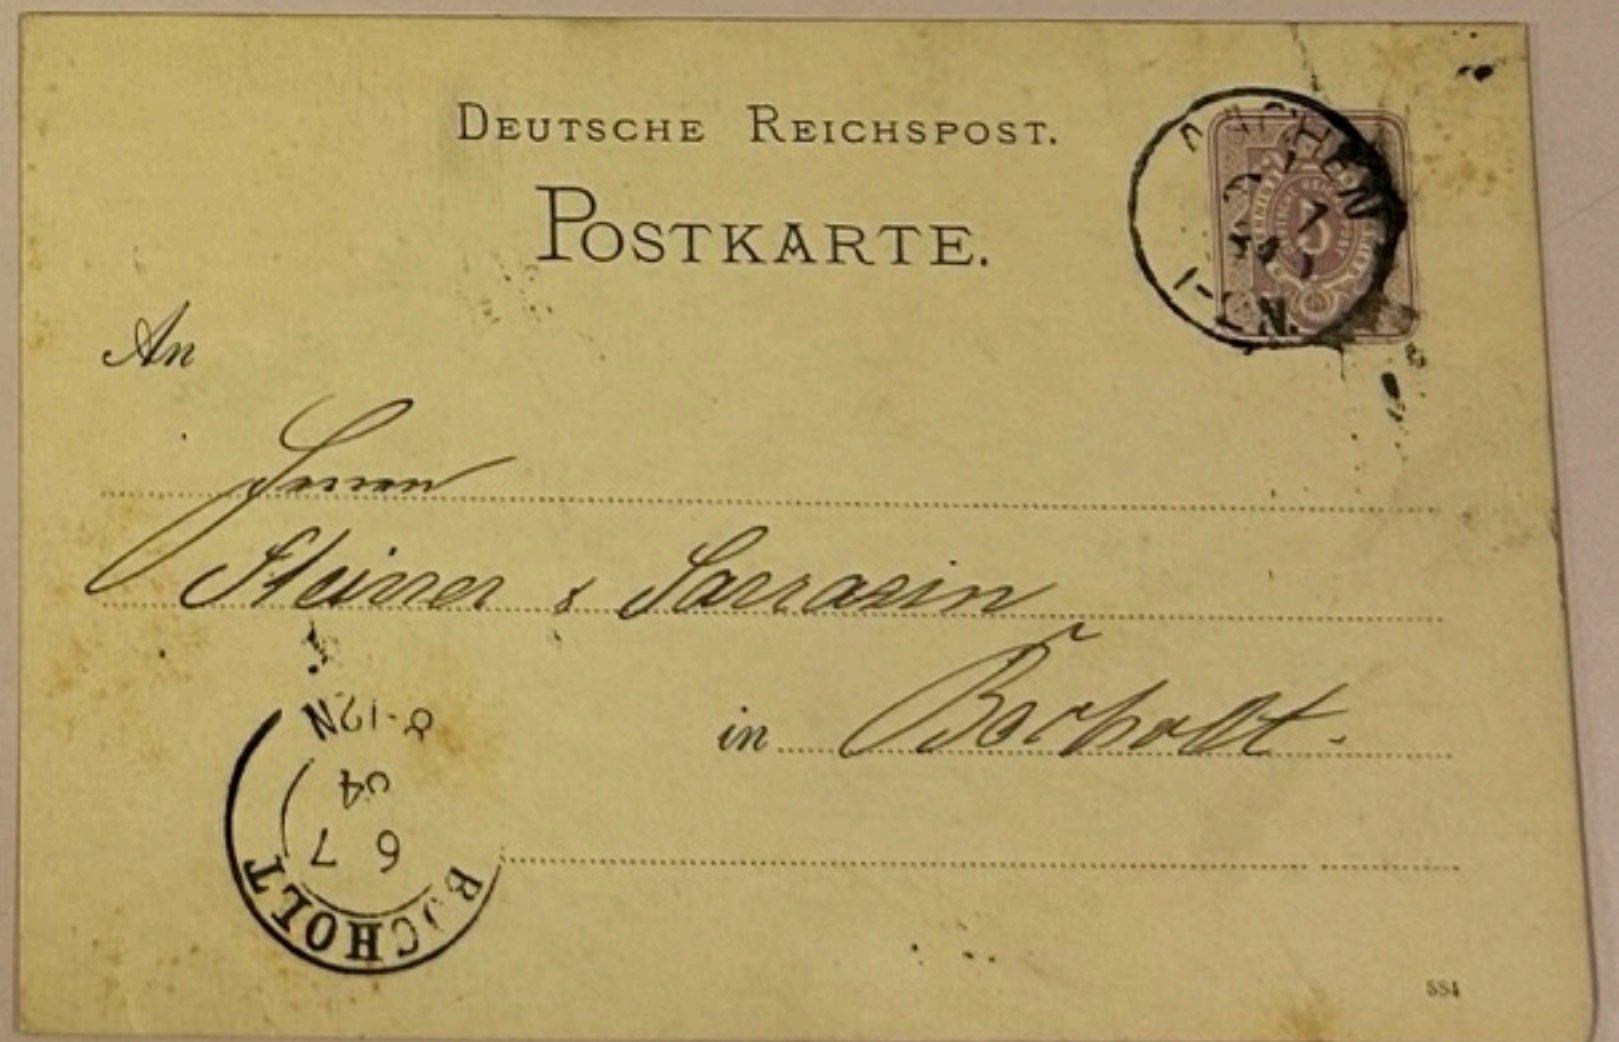 DEUTSCHE REICHSPOST.
POSTKARTE.
AACHEN
7
1-2 N.
5
An
Herren
Steiner & Sarrazin
in Bocholt.
BOCHOLT
6 7
84
8-12N
884